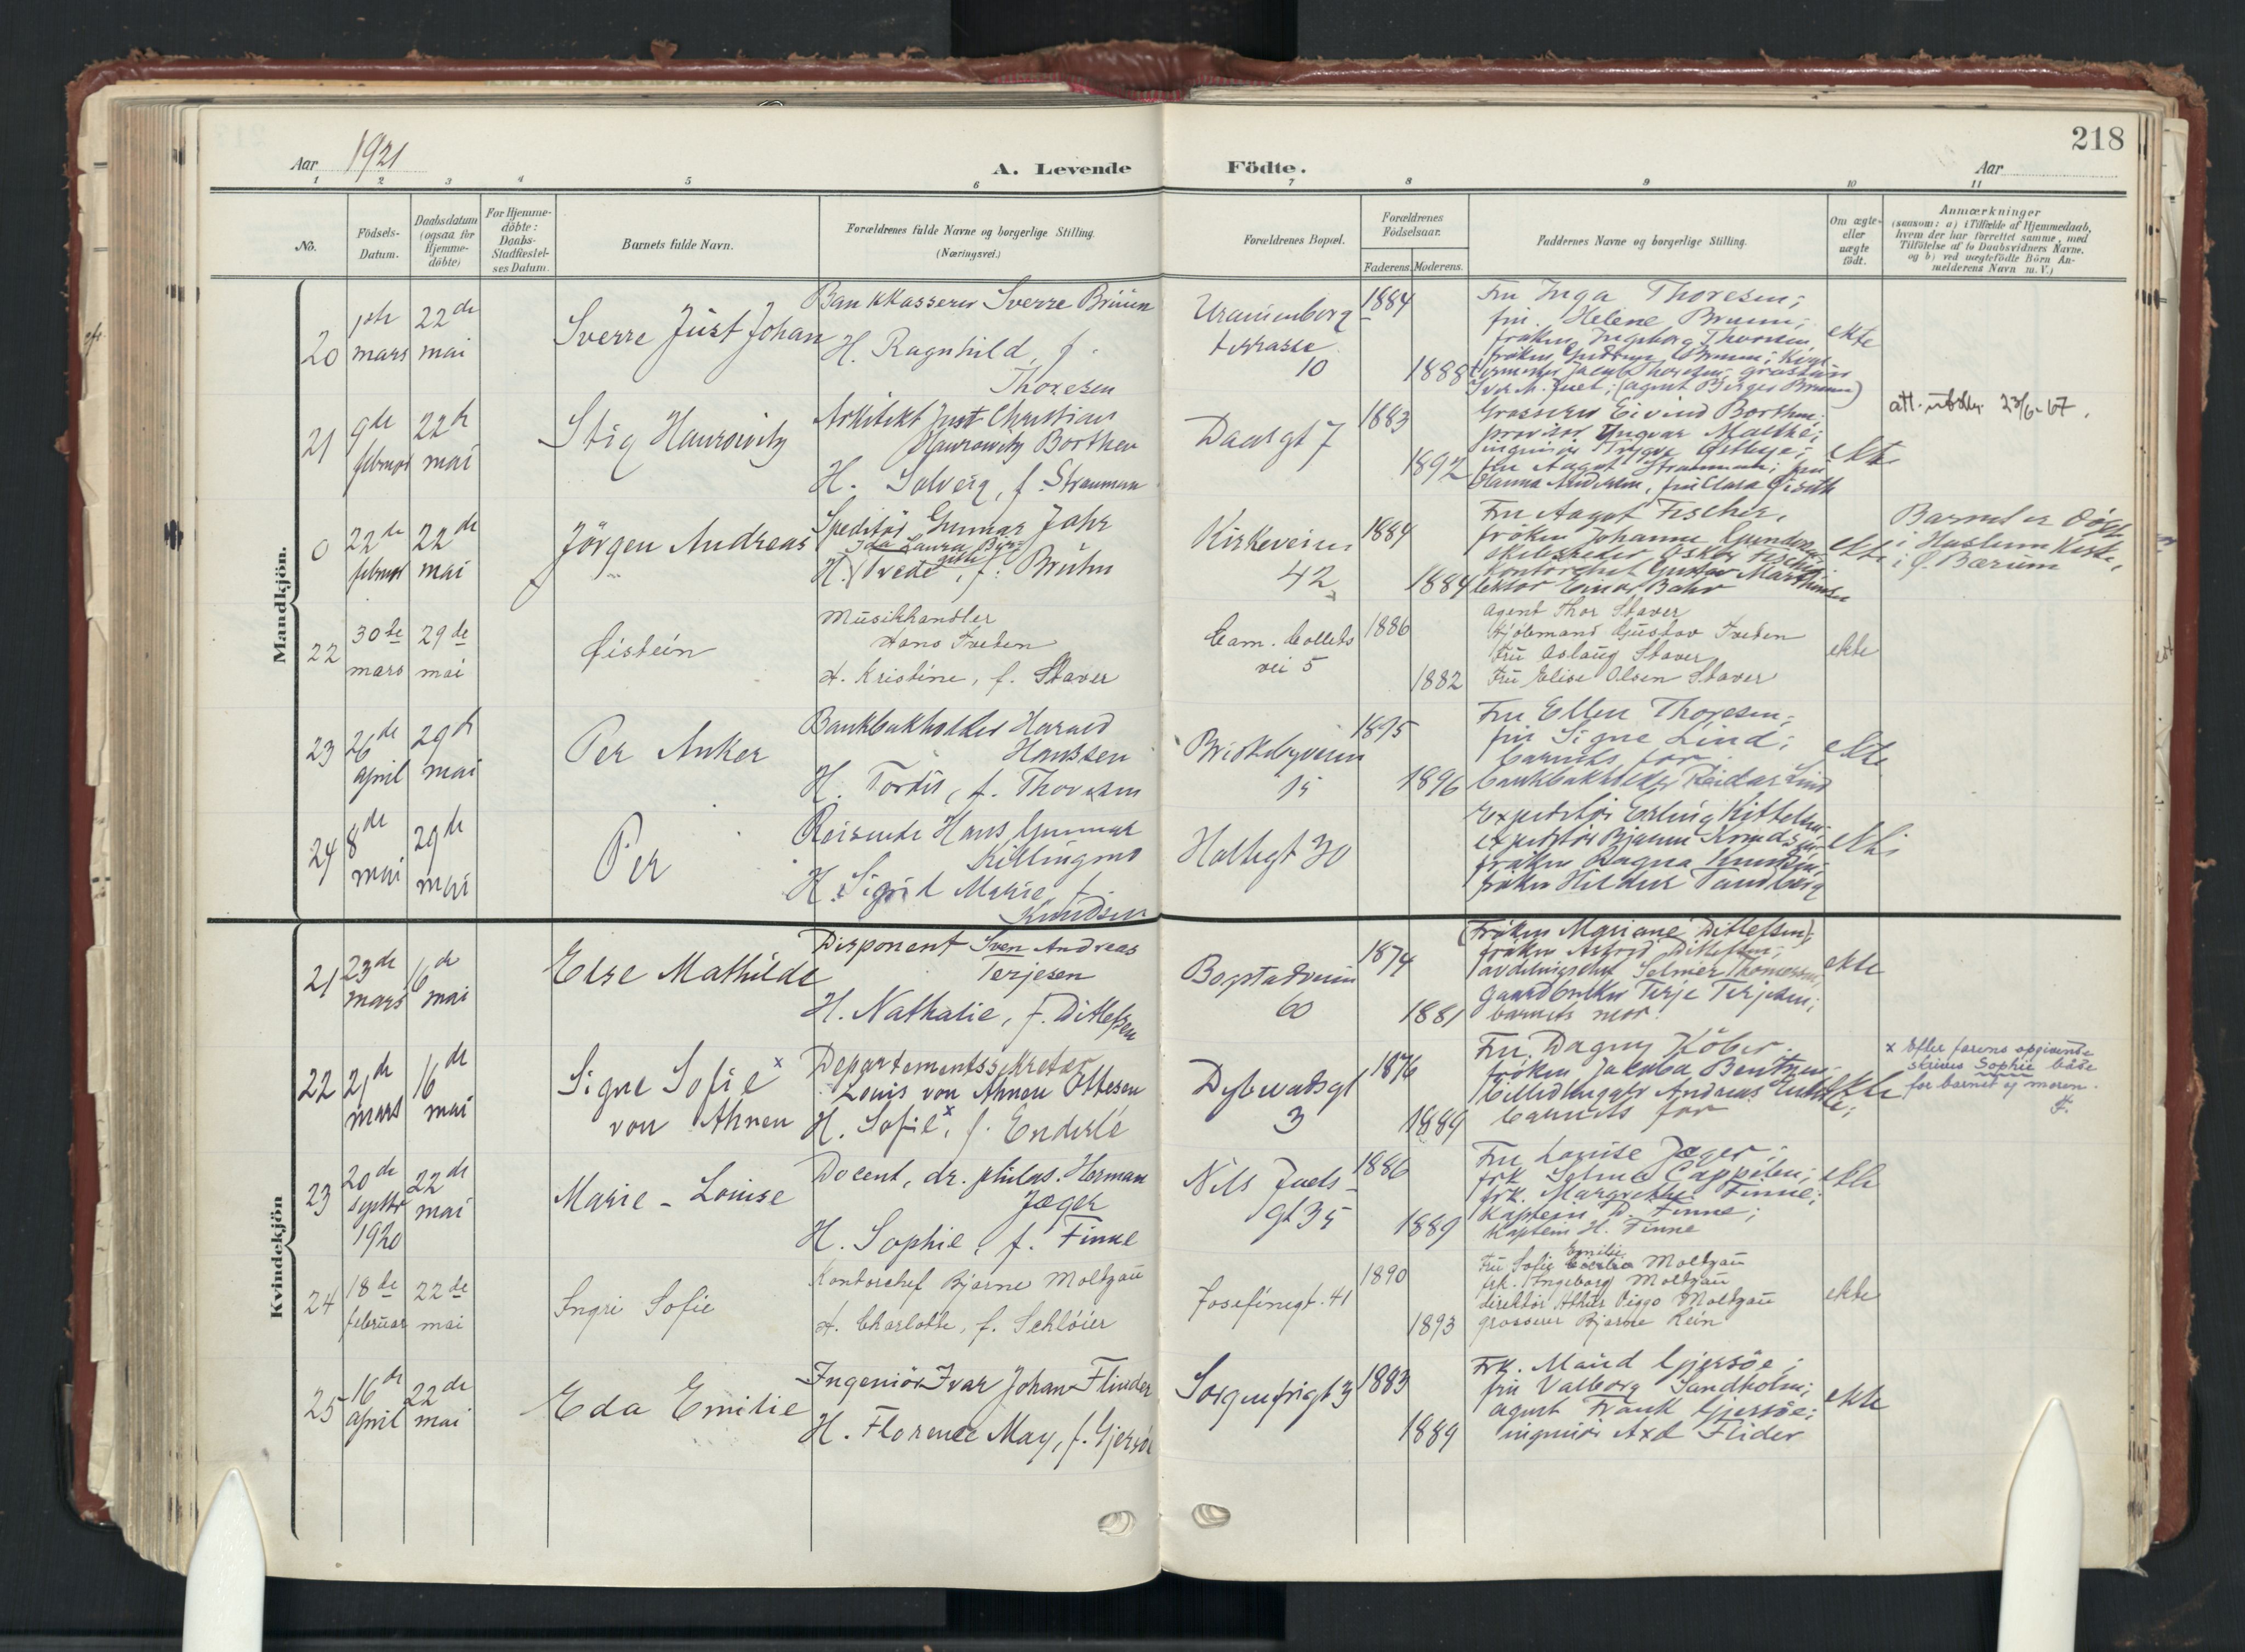 218
Aar 1921
A. Levende Födte.
Aar
1 2 3 4 5 6 7 8 9 10 11
No.
Födsels-Datum.
Daabsdatum (ogsaa for Hjemme-döbte)
For Hjemme-döbte: Daabs-Stadfæstel-ses Datum.
Barnets fulde Navn.
Forældrenes fulde Navne og borgerlige Stilling.
(Næringsvei.)
Forældrenes Bopæl.
Forældrenes Födselsaar.
Faderens. Moderens.
Faddernes Navne og borgerlige Stilling.
Om ægte- eller uægte födt.
Anmærkninger
(saasom: a) i Tilfælde af Hjemmedaab,
hvem der har forrettet samme, med
Tilföielse af to Daabsvidners Navne,
og b) ved uægtefödte Börn An-
melderens Navn m. V.)
Mandkjön.
20
1ste mars
22de mai
Sverre Just Johan
Bankkasserer Sverre Bruun
H. Ragnhild, f.
Thoresen
Uranienborg
terrasse
10
1884
1888
Fru Inga Thoresen;
fru Helene Bruun;
frøken Ingeborg Thoresen
ekte
21
9de februar
22de mai
Stig Haurowitz
Arkitekt Just Christian
Haurowitz Borthen
H. Solveig, f. Strauman
Daasgt 7
1883
1892
Grosserer Eivind Borthen;
provisor Yngvar Malthe;
ekte
att. utst. 23/6-67.
0
22de februar
22de mai
Jörgen Andreas
Speditör Gunnar Jahr
H. Tvede, f. Bruhn
Kirkeveien
42
1884
1884
Fru Aagot Fischer,
frøken Johanne Gundersen
skibsreder Oskar Fischer
kontorchef Gustav Marthinsen
lektor Einar Bahr
ekte
Barnet er døpt
i Haslum Kirke,
i Ø. Bærum
22
30te mars
29de mai
Øistein
Musikhandler
Hans Tveten
H. Kristine, f. Staver
Cam. Colletts
vei 5
1886
1882
Agent Thor Staver
Sjømand Gustav Tveten
Fru Aslaug Staver
Fru Elise Olsen Staver
ekte
23
26de april
29de mai
Per Anker
Bankbokholder Harald
Hanssen
H. Tordis, f. Thoresen
Briskebyveien
15
1895
1896
Fru Ellen Thoresen;
fru Signe Lind;
barnets far
bankbokholder Reidar Lind
ekte
24
8de mai
29de mai
Per
Reisende Hans Gunnar
Killingmo
H. Sigrid Marie f.
Knudsen
Holtegt 30
Expeditør Erling Kittelsen;
expeditør Bjarne Knudsen;
frøken Ragna Knudsen;
frøken Hildur Sandberg
ekte
Kvindekjön
21
23de mars
16de mai
Else Mathilde
Disponent Sven Andreas
Terjesen
H. Nathalie, f. Ditlefsen
Bogstadveien
60
1874
1881
(Frøken Mariane Ditlefsen);
frøken Astrid Ditlefsen;
avdelingschef Selmer Thomassen;
gaardbruker Terje Terjesen;
barnets mor.
ekte
22
21de mars
16de mai
Signe Sofie x
von Ahnen
Departementssekretær
Louis von Ahnen Ottesen
H. Sofie x, f. Enderle
Dybwadsgt
3
1876
1889
Fru Dagny Köber.
frøken Jakoba Bentzen;
billedhugger Andreas Enderle;
barnets far
ekte
x Efter farens opgivende
skrives Sophie både
for barnet og moren.
F.
23
20de septbr 1920
22de mai
Marie-Louise
Docent, dr. philos. Herman
Jæger
H. Sophie, f. Finne
Nils Juels
gt 35
1886
1889
Fru Louise Jæger;
frk. Selma Cappelen;
frk. Margrethe Finne;
Kaptein D. Finne;
Kaptein H. Finne
ekte
24
18de februar
22de mai
Ingri Sofie
Kontorchef Bjarne Moltzau
H. Charlotte, f. Schlöier
Josefinegt. 41
1890
1893
Emilie
Fru Sofie Moltzau
frk. (Ingeborg) Moltzau
direktör Viggo Moltzau
grosserer Bjarne Rein
ekte
25
16de april
22de mai
Eda Emilie
Ingeniör Ivar Johan Flinder
H. Florence May, f. Gjersöe
Sorgenfrigt 3
1883
1889
Frk. Maud Gjersöe;
fru Valborg Sandholm;
agent Frank Gjersöe;
ingeniør Axel Flider
ekte